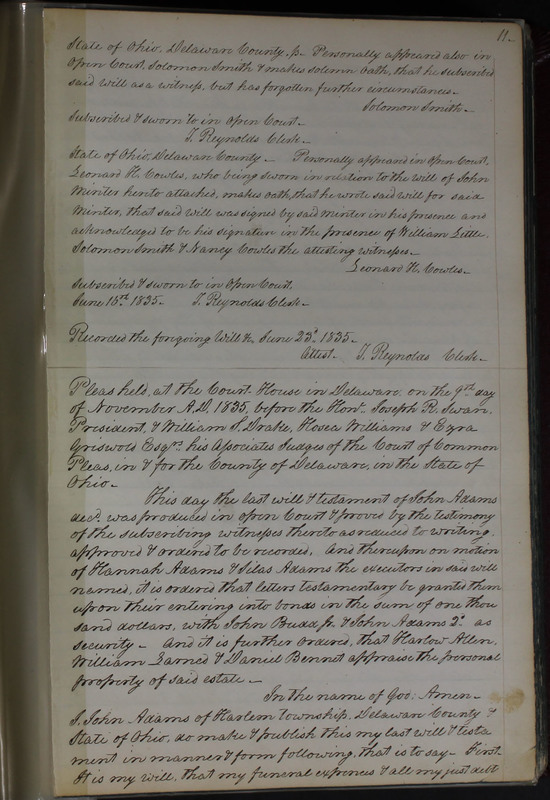 11.
State of Ohio, Delaware County, ss. Personally appeared also in
Open Court, Solomon Smith & makes solemn Oath, that he subscribed
said will as a witness, but has forgotten further circumstances.
Solomon Smith.
Subscribed & sworn to in Open Court.
T. Reynolds Clerk.
State of Ohio, Delaware County. Personally appeared in Open Court,
Leonard H. Cowles, who being sworn in relation to the will of John
Minter hereto attached, makes oath, that he wrote said will for said
Minter, that said will was signed by said Minter in his presence and
acknowledged to be his signature in the presence of William Little,
Solomon Smith & Nancy Cowles the attesting witnesses.
Leonard H. Cowles.
Subscribed & sworn to in Open Court,
June 16th 1835. T. Reynolds Clerk.
Recorded the foregoing Will &c, June 23d 1835.
Attest. T. Reynolds Clerk.
Pleas held, at the Court-House in Delaware, on the 9th day
of November A.D. 1835, before the Hon. Joseph R. Swan,
President, & William S. Drake, Hosea Williams & Ezra
Griswold Esqrs. his Associates Judges of the Court of Common
Pleas, in & for the County of Delaware, in the State of
Ohio.
This day the last will & testament of John Adams
decd. was produced in open Court & proved by the testimony
of the subscribing witnesses thereto as reduced to writing,
approved & ordered to be recorded. And thereupon on motion
of Hannah Adams & Silas Adams the executors in said will
named, it is ordered that letters testamentary be granted them
upon their entering into bonds in the sum of one thou
sand dollars, with John Budd jr. & John Adams 2d. as
security. And it is further ordered, that Harlow Allen,
William Larned & Daniel Bennet appraise the personal
property of said estate.
In the name of God: Amen.
I, John Adams of Harlem township, Delaware County &
State of Ohio, do make & publish this my last will & testa
ment in manner & form following, that is to say. First.
It is my will, that my funeral expences & all my just debts